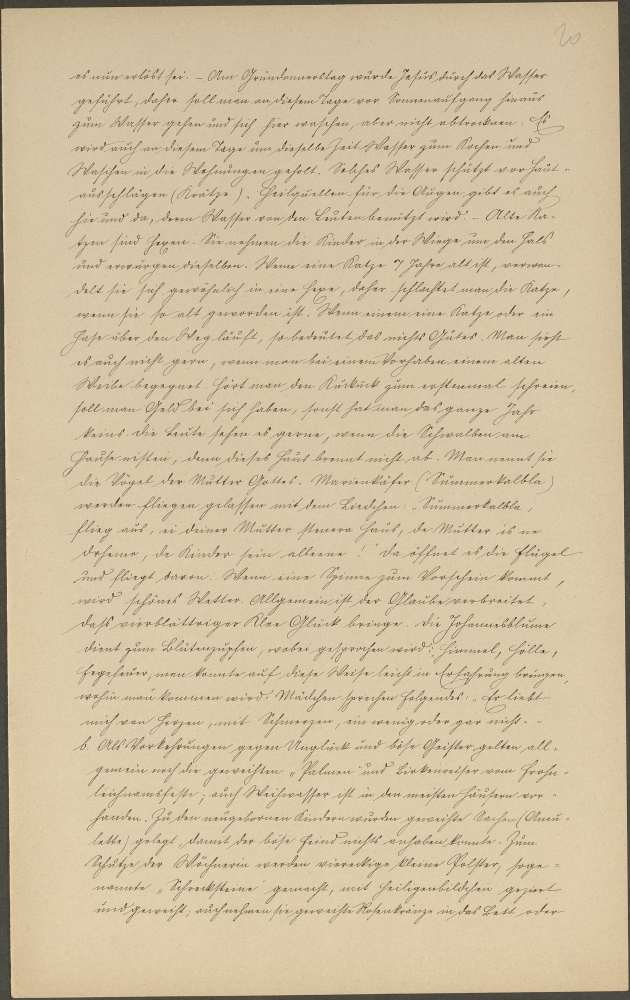 20
es nun erlöst sei. – Am Gründonnerstag wurde Jesus durch das Wasser
geführt, daher soll man an diesem Tage vor Sonnenaufgang hinaus
zum Wasser gehen und sich hier waschen, aber nicht abtrocknen. Es
wird auch an diesem Tage um dieselbe Zeit Wasser zum Kochen und
Waschen in die Wohnungen geholt. Solches Wasser schützt vor Haut-
ausschlägen (Krätze). Heilquellen für die Augen gibt es auch
hie und da, deren Wasser von den Leuten benützt wird. – Alte Ka-
tzen sind Hexen. Sie nehmen die Kinder in der Wiege um den Hals
und erwürgen dieselben. Wenn eine Katze 7 Jahre alt ist, verwan-
delt sie sich gewöhnlich in eine Hexe, daher schlachtet man die Katze,
wenn sie so alt geworden ist. Wenn einem eine Katze oder ein
Hase über den Weg läuft, so bedeutet das nichts Gutes. Man sieht
es auch nicht gern, wenn man bei einem Vorhaben einem alten
Weibe begegnet. Hört man den Kuckuck zum erstenmal schreien,
soll man Geld bei sich haben, sonst hat man das ganze Jahr
keins. Die Leute sehen es gerne, wenn die Schwalben am
Hause nisten, denn dieses Haus brennt nicht ab. Man nennt sie
die Vögel der Mutter Gottes. Marienkäfer (Summerkalbla)
werden fliegen gelassen mit dem Liedchen: „Summerkalbla,
flieg aus, ei deiner Mutter Haus, de Mutter is ne
derheme, de Kinder sein alleene! Da öffnet es die Flügel
und fliegt davon. Wenn eine Spinne zum Vorschein kommt,
wird schönes Wetter. Allgemein ist der Glaube verbreitet,
daß vierblättriger Klee Glück bringe. Die Johannesblume
dient zum Blütenzupfen, wobei gesprochen wird: Himmel, Hölle,
Fegefeuer, man konnte auf diese Weise leicht in Erfahrung bringen,
wohin man kommen wird. Mädchen sprechen folgendes: „Er liebt
mich von Herzen, mit Schmerzen, ein wenig oder gar nicht. –
b. Als Vorkehrungen gegen Unglück und böse Geister gelten all-
gemein noch die geweihten „Palmen" und Birkenreiser vom Frohn-
leichnamsfeste; auch Weihwasser ist in den meisten Häusern vor-
handen. Zu den neugebornen Kindern wurden geweihte Sachen (Amu-
lette) gelegt, damit der böse Feind nichts anhaben konnte. Zum
Schutze der Wöchnerin werden viereckige kleine Polster, soge-
nannte „Schrecksteine" gemacht, mit Heiligenbildchen geziert
und geweiht; auch nehmen sie geweihte Rosenkränze in das Bett oder